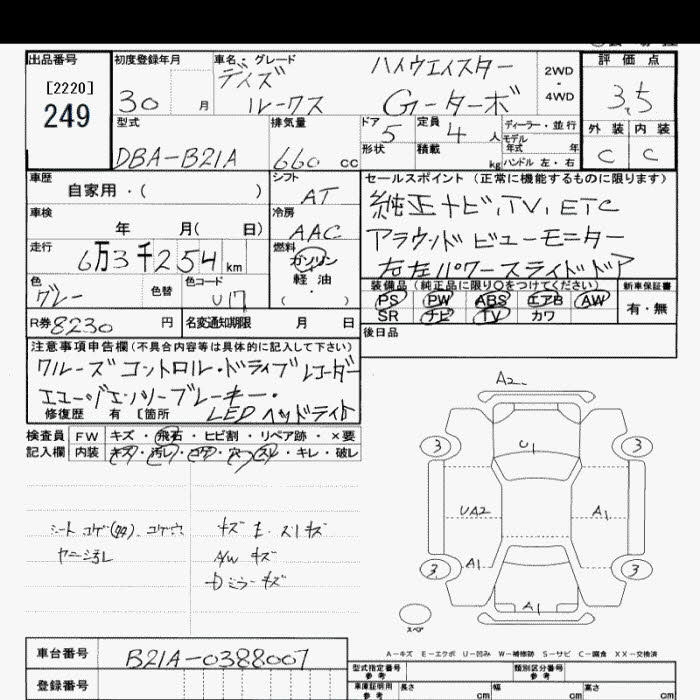 出品番号
[2220]
249
初度登録年月
30 月
車名・グレード
デイズ ハイウェイスター
ルークス Gーターボ
2WD
・
4WD
評価点
3.5
外装 内装
C C
型式
DBA-B21A
排気量
660 cc
ドア 5
定員 4 人
形状
積載 kg
ディーラー・並行
モデル
年式 年
ハンドル 左・右
車歴
自家用・( )
シフト
AT
車検
年 月( 日)
冷房
AAC
走行
6万3千254 km
燃料
ガソリン
軽油
( ・ )
色
グレー
色替
色コード
U17
R券 8230 円
名変通知期限 月 日
セールスポイント (正常に機能するものに限ります)
純正ナビ,TV,ETC
アラウンドビューモニター
右左パワースライドドア
装備品 (純正品に限り○をつけてください)
PS PW ABS エアB AW
SR ナビ TV カワ
新車保証書
有・無
後日品
注意事項申告欄(不具合内容等は具体的に記入して下さい)
クルーズコントロール・ドライブレコーダー
エマージェンシーブレーキー・
修復歴 有 〔箇所 LEDヘッドライト
検査員
記入欄
FW キズ・飛石・ヒビ割・リペア跡・×要
内装 キズ・汚レ・コゲ・穴・スレ・キレ・破レ
シート コゲ コゲ穴
ヤニ汚レ
キズ E・スリキズ
A/W キズ
ミラーキズ
A2
3 U1 3
UA2 A1
3 A1 3
A1
スペア
A－キズ E－エクボ U－凹み W－補修跡 S－サビ C－腐食 XX－交換済
車台番号
B21A-0388007
登録番号
型式指定番号
参考
類別区分番号
参考
車庫証明用
参考
長さ cm
幅 cm
高さ cm